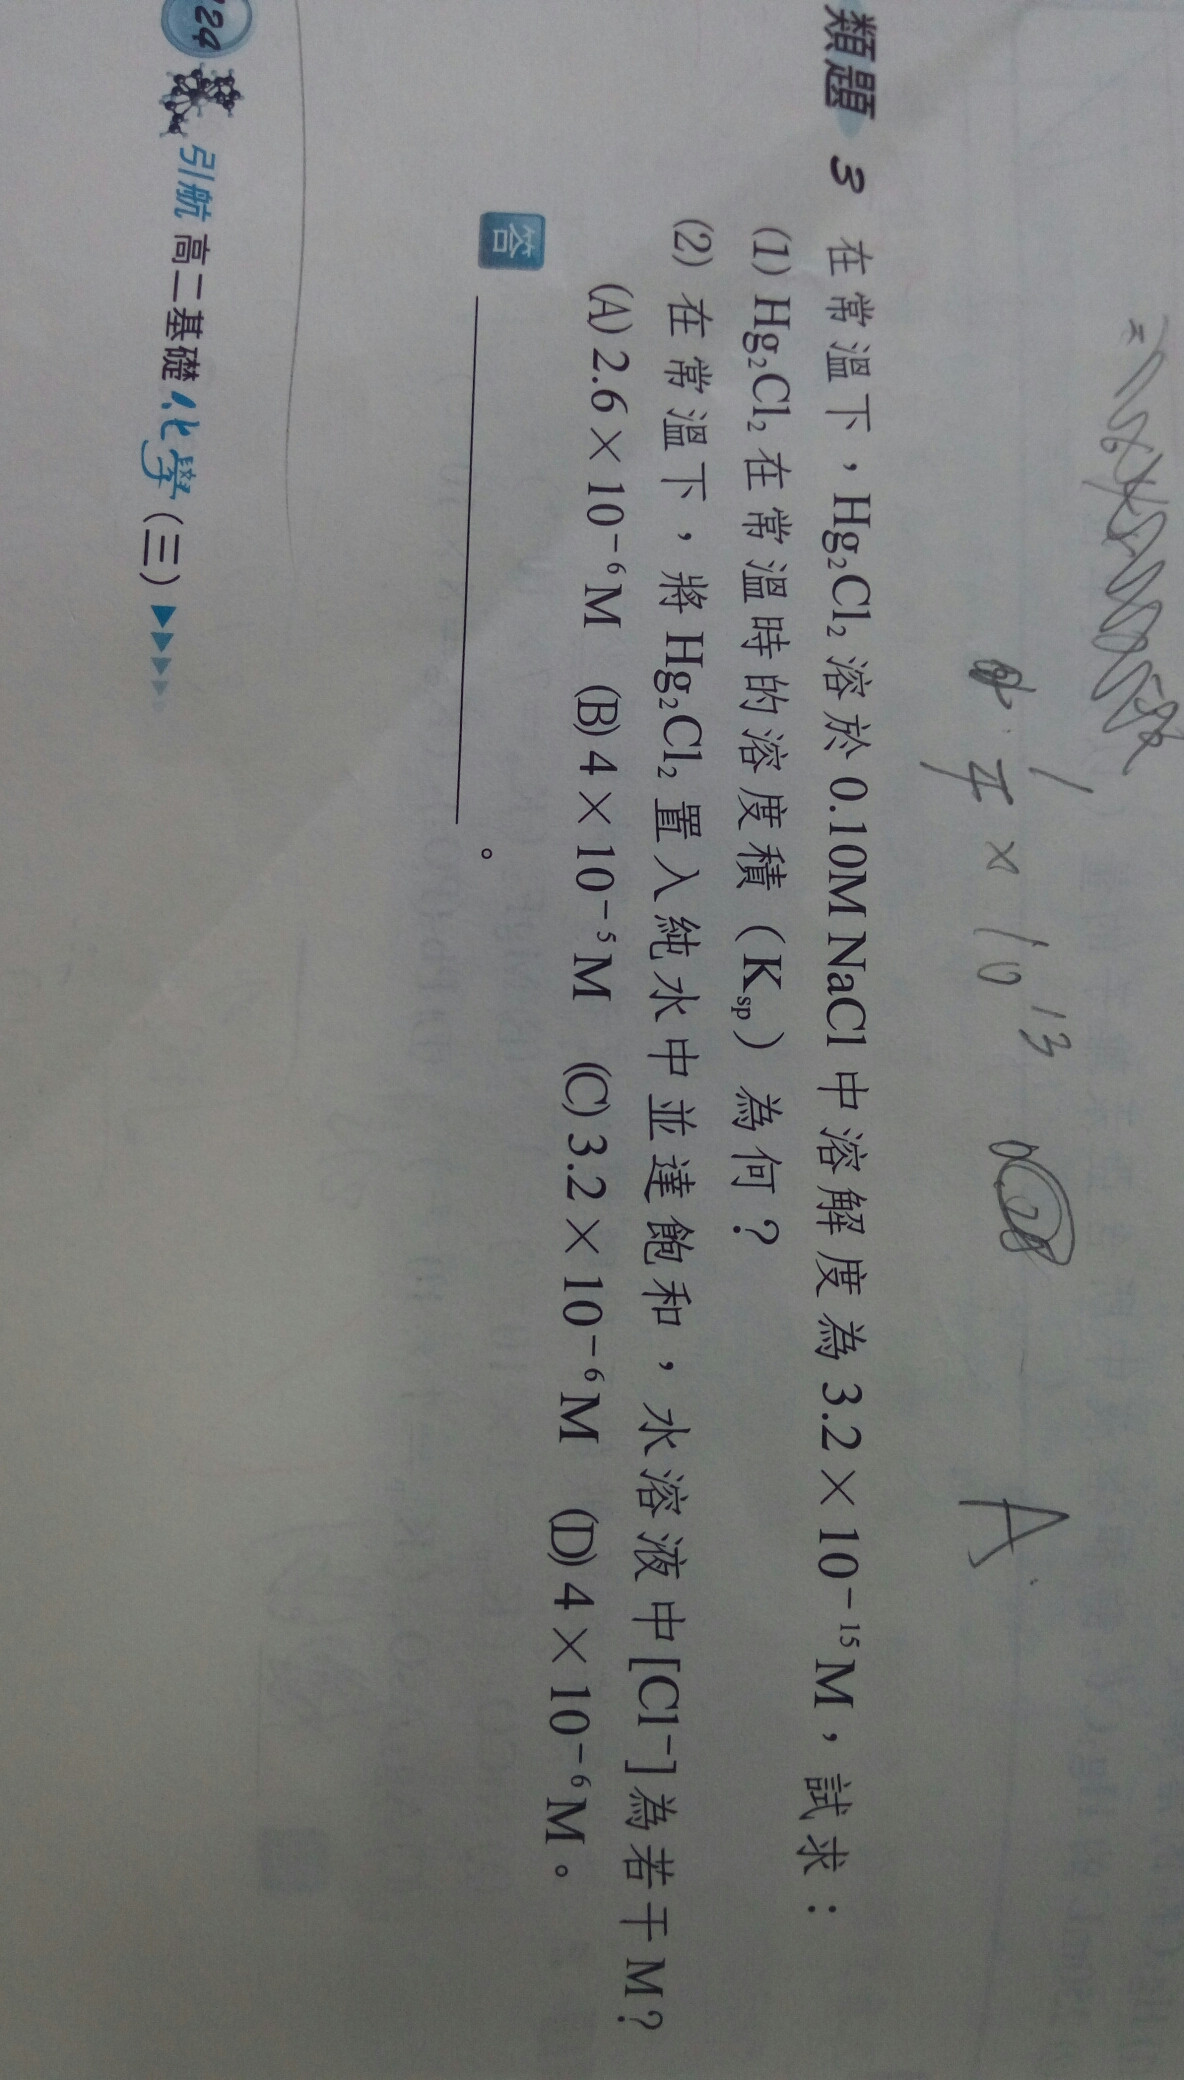 4 × 10 13
A
類題 3 在常溫下，Hg₂Cl₂ 溶於 0.10M NaCl 中溶解度為 3.2 × 10⁻¹⁵ M，試求：
(1) Hg₂Cl₂ 在常溫時的溶度積（Kₛₚ）為何？
(2) 在常溫下，將 Hg₂Cl₂ 置入純水中並達飽和，水溶液中 [Cl⁻] 為若干 M？
(A) 2.6 × 10⁻⁶ M (B) 4 × 10⁻⁵ M (C) 3.2 × 10⁻⁶ M (D) 4 × 10⁻⁶ M。
答 ＿＿＿＿＿＿＿＿。
124 引航 高二基礎化學（三）